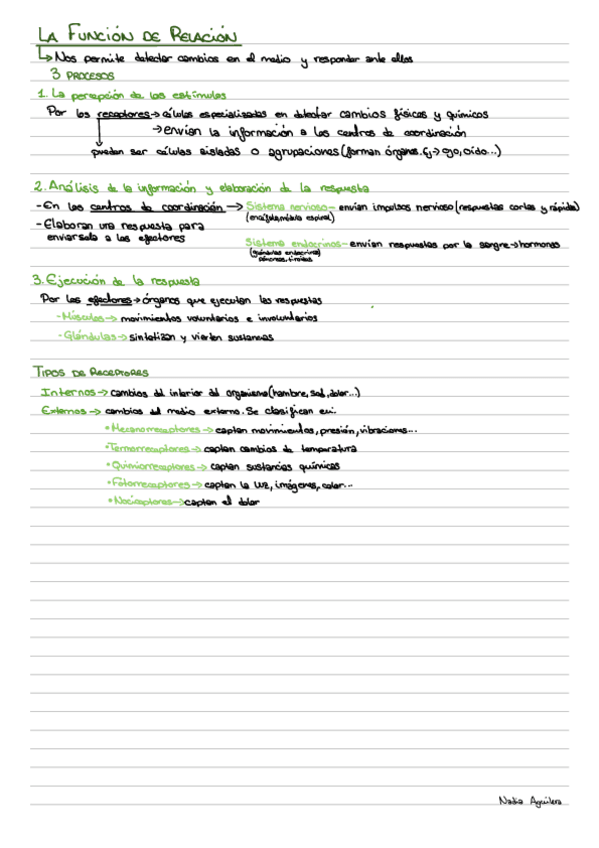 LA FUNCIÓN DE RELACIÓN
↳ Nos permite detectar cambios en el medio y responder ante ellos
3 PROCESOS
1. La percepción de los estímulos
Por los receptores → células especializadas en detectar cambios físicos y químicos
→ envían la información a los centros de coordinación
pueden ser células aisladas o agrupaciones (forman órganos. Ej → ojo, oído...)
2. Análisis de la información y elaboración de la respuesta
- En los centros de coordinación → Sistema nervioso - envían impulsos nervioso (respuestas cortas y rápida)
(encéfalo, médula espinal)
- Elaboran una respuesta para
enviarsela a los efectores
Sistema endocrinos - envían respuestas por la sangre → hormonas
(glándulas endocrinas)
páncreas, tiroides
3. Ejecución de la respuesta
Por los efectores → órganos que ejecutan las respuestas
- Músculos → movimientos voluntarios e involuntarios
- Glándulas → sintetizan y vierten sustancias
TIPOS DE RECEPTORES
Internos → cambios del interior del organismo (hambre, sed, dolor...)
Externos → cambios del medio externo. Se clasifican en:
• Mecanorreceptores → captan movimientos, presión, vibraciones...
• Termorreceptores → captan cambios de temperatura
• Quimiorreceptores → captan sustancias químicas
• Fotorreceptores → captan la luz, imágenes, color...
• Nociceptores → captan el dolor
Nadia Aguilera